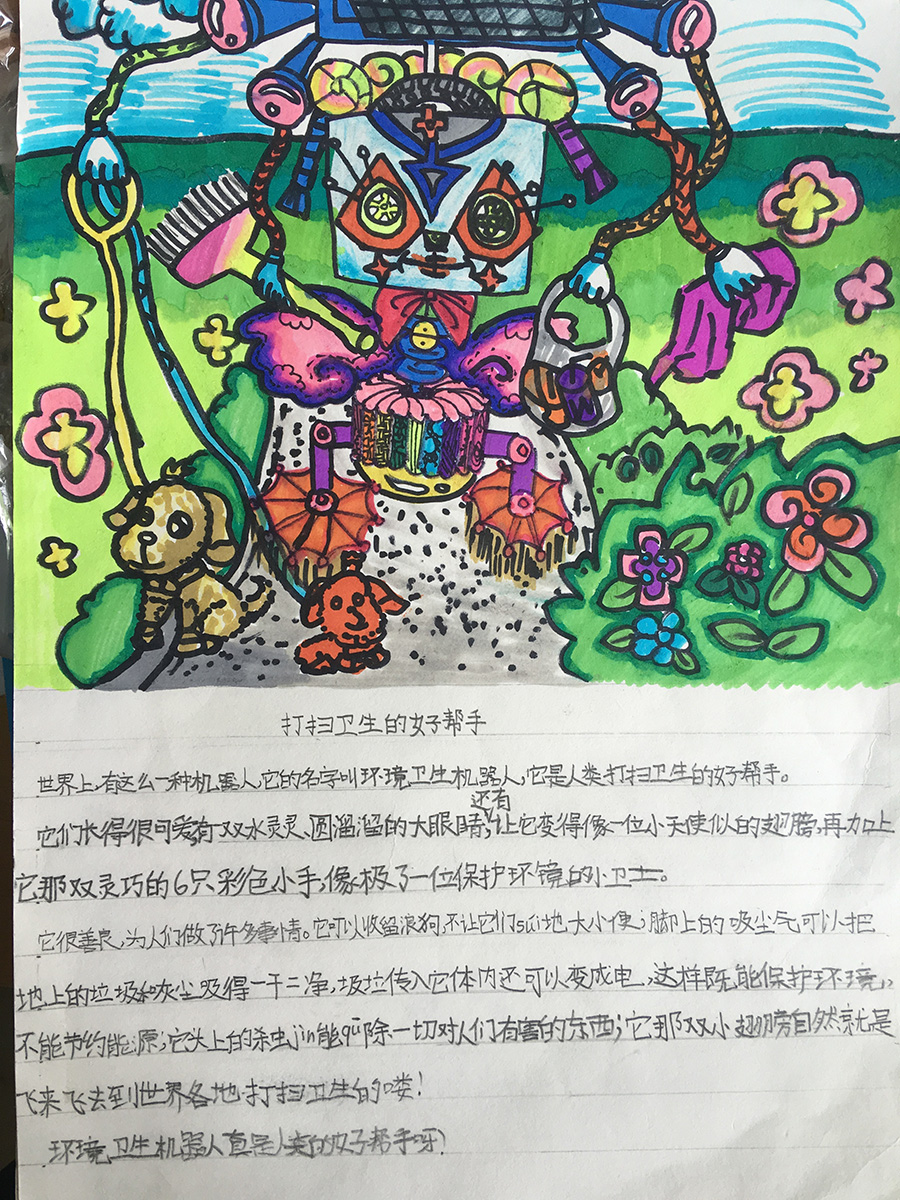 打扫卫生的好帮手
世界上,有这么一种机器人,它的名字叫环境卫生机器人,它是人类打扫卫生的好帮手。
还有
它们长得很可爱,有双水灵灵、圆溜溜的大眼睛,让它变得像一位小天使似的翅膀,再加上
它那双灵巧的6只彩色小手,像极了一位保护环镜的小卫士。
它很善良,为人们做了许多事情。它可以收留浪狗,不让它们suí地大小便;脚上的吸尘气可以把
地上的垃圾和灰尘吸得一干二净,圾拉传入它体内还可以变成电,这样既能保护环境,
不能节约能源;它头上的杀虫jìn能qū除一切对人们有害的东西;它那双小翅膀自然就是
飞来飞去到世界各地打扫卫生的喽!
环境卫生机器人真是人类的好帮手呀?